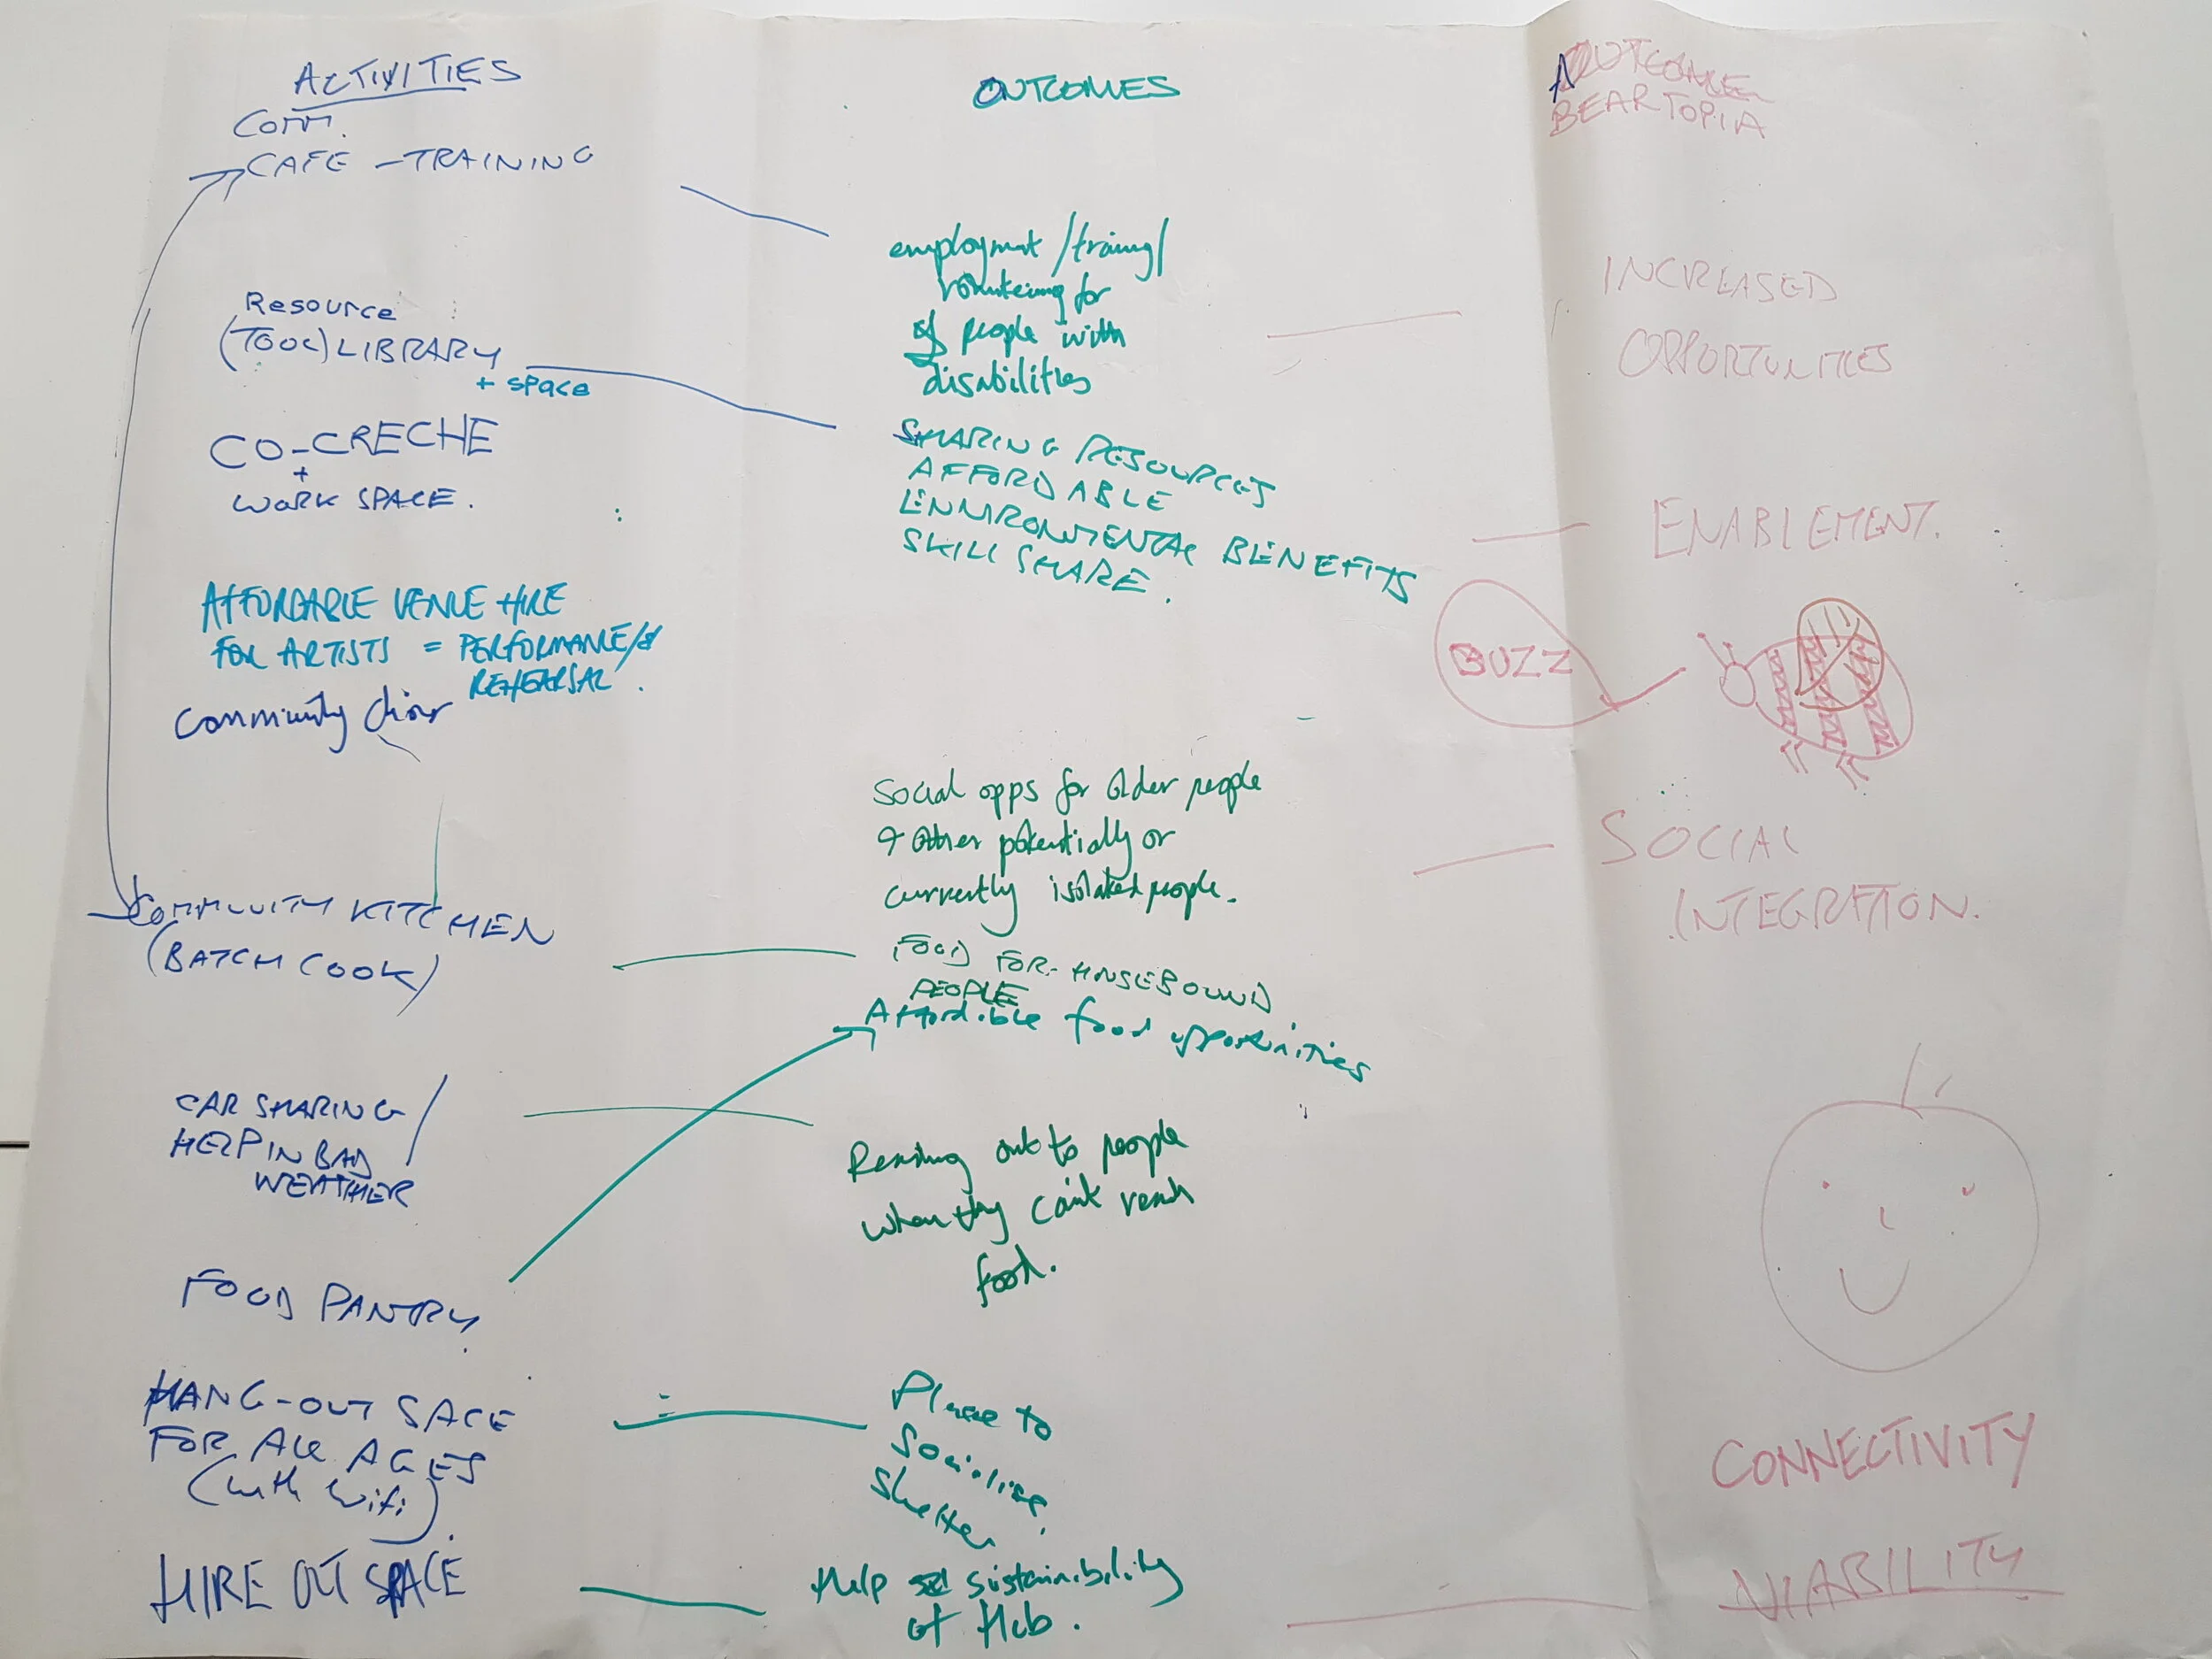 ACTIVITIES
Comm.
CAFE - TRAINING
Resource
(TOOL) LIBRARY
+ space
CO-CRECHE
+
WORK SPACE.
AFFORDABLE VENUE HIRE
FOR ARTISTS = PERFORMANCE/
REHEARSAL.
Community choir
COMMUNITY KITCHEN
(BATCH COOK)
CAR SHARING /
HELP IN BAD
WEATHER
FOOD PANTRY.
HANG-OUT SACE
FOR ALL AGES
(with wifi).
HIRE OUT SPACE
OUTCOMES
employment /training/
volunteering for
people with
disabilities
SHARING RESOURCES
AFFORDABLE
ENVIRONMENTAL BENEFITS
SKILL SHARE.
Social opps for older people
+ other potentially or
currently isolated people.
FOOD FOR HOUSEBOUND
PEOPLE
Affordible food opportunities
Reaching out to people
when they can't reach
food.
Place to
Socialise,
Shelter
Help sustainibility
of Hub.
OUTCOME
BEARTOPIA
INCREASED
OPPORTUNITIES
ENABLEMENT.
BUZZ
SOCIAL
INTEGRATION.
CONNECTIVITY
VIABILITY